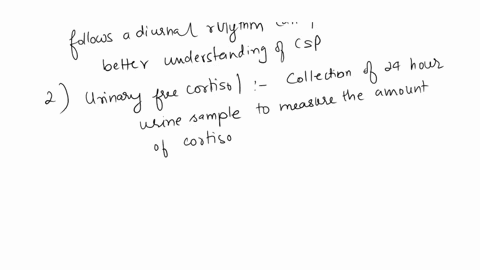 follows a diurnal rhythm
better understanding of CSP
2) Urinary free cortisol :- Collection of 24 hour
urine sample to measure the amount
of cortiso